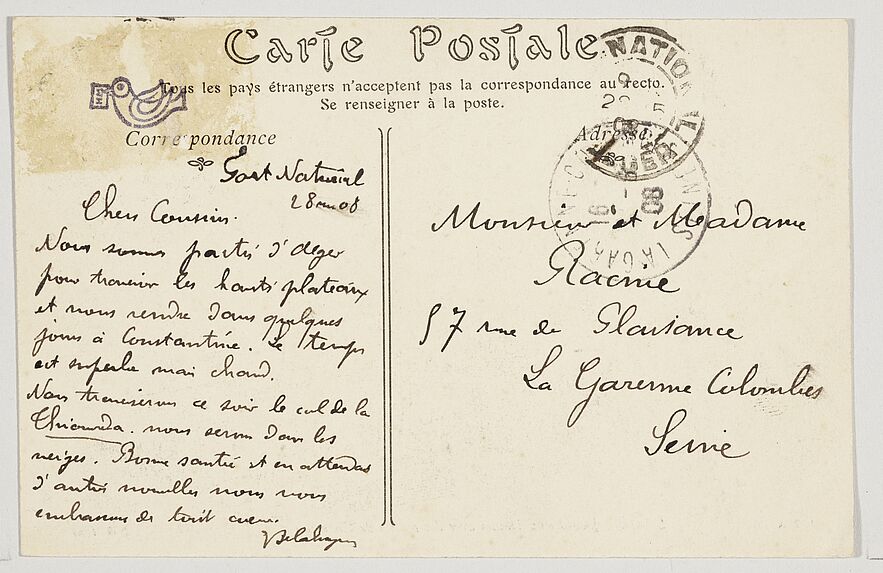 Carte Postale
Tous les pays étrangers n'acceptent pas la correspondance au recto.
Se renseigner à la poste.
Correspondance
Adresse
Fort National
28 mai 08
Chers Cousins.
Nous sommes partis d'Alger
pour traverser les hauts plateaux
et nous rendre dans quelques
jours à Constantine. Le temps
est superbe mais chaud.
Nous traverserons ce soir le col de
Thirourda. nous serons dans les
neiges. Bonne santé et en attendant
d'autres nouvelles nous vous
embrassons de tout coeur.
Monsieur et Madame
Racine
57 rue de Plaisance
La Garenne Colombes
Seine
NATIONAL
ALGER
08